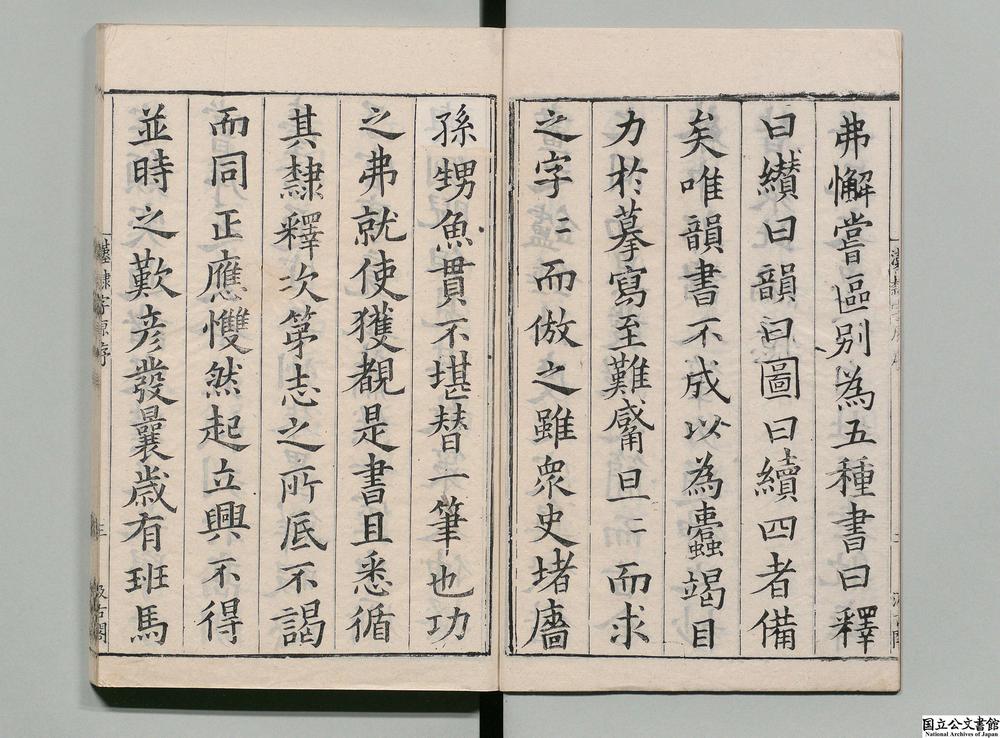 弗懈嘗區別為五種書曰釋
曰纉曰韻曰圖曰續四者備
矣唯韻書不成以為蠹竭目
力於摹寫至難鬳旦〻而求
之字〻而倣之雖衆史堵廧
孫甥魚貫不堪替一筆也功
之弗就使獲覩是書且悉循
其隸釋次第志之所底不謁
而同正應戄然起立興不得
並時之歎彥發曩歲有班馬
漢隸字原序
汲古閣
国立公文書館
National Archives of Japan